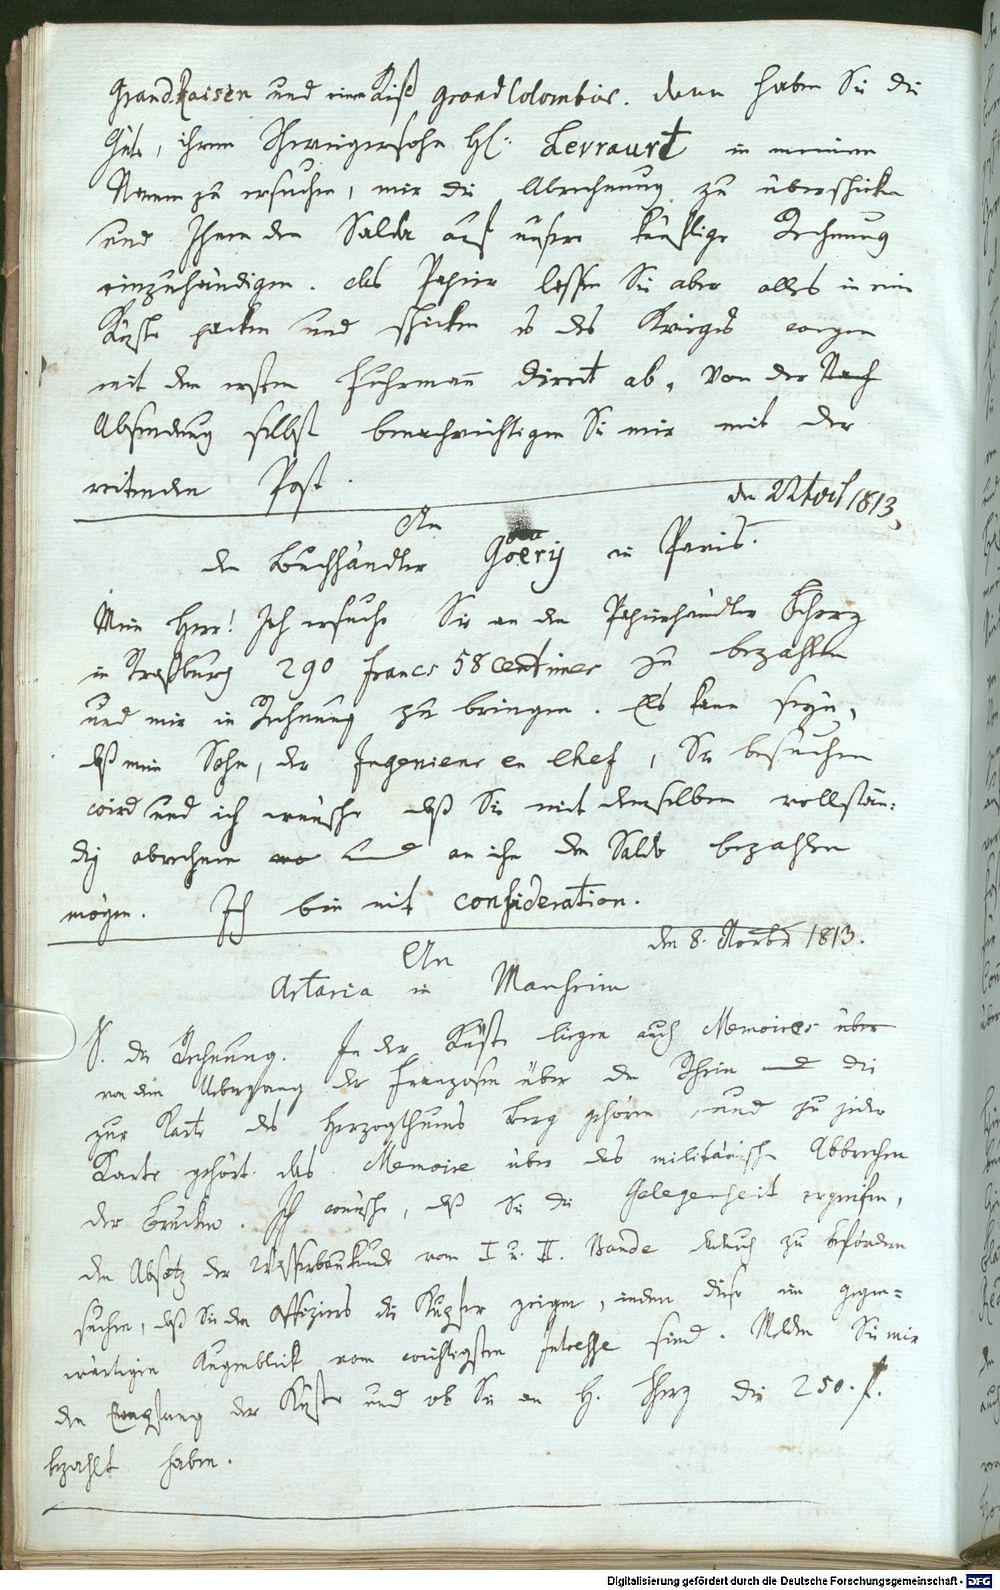 Grand Raisin und einen Riß Grand Colombier. Dann haben Sie die
Güte, ihrem Schwiegersohn H. Levrault in meinem
Namen zu ersuchen, mir die Abrechnung zu überschicken
und Ihnen den Saldo auf unsere künftige Rechnung
einzuhändigen. Das Papier lassen Sie aber alles in eine
Küste packen und schicken es des Krieges wegen
mit dem ersten Fuhrmann direct ab, von der Nach
Absendung selbst benachrichtigen Sie mir mit der
reitenden Post.
den 22 1813,
An
den Buchhändler Goery in Paris.
Mein Herr! Ich ersuche Sie an den Papierhändler Scherz
in Straßburg 290 francs 58 centimes zu bezahlen
und mir in Rechnung zu bringen. Es kann seyn,
daß mein Sohn, der Ingenieur en Chef, Sie besuchen
wird und ich wünsche daß Sie mit demselben vollstän:
dig abrechnen und an ihn den Saldo bezahlen
mögen. Ich bin mit consideration.
den 8. Novbr 1813.
An
Artaria in Manheim
S. die Rechnung. In der Küste liegen auch Memoires über
von dem Uebergang der Franzosen über den Rhein und die
zur Karte des Herzogthums Berg gehören, und zu jeder
Karte gehört das Memoire über das militärische Abbrechen
der Brücken. Ich wünsche, daß Sie die Gelegenheit ergreifen,
den Absatz der Wasserbaukunde vom I u. II. Bande dadurch zu befördern
suchen, daß Sie den Offiziers die Kupfer zeigen, indem diese im gegen=
wärtigen Augenblick vom wichtigsten Interesse sind. Melden Sie mir
den Empfang der Küste und ob Sie an H. Scherz die 250. f.
bezahlt haben.
Digitalisierung gefördert durch die Deutsche Forschungsgemeinschaft - DFG